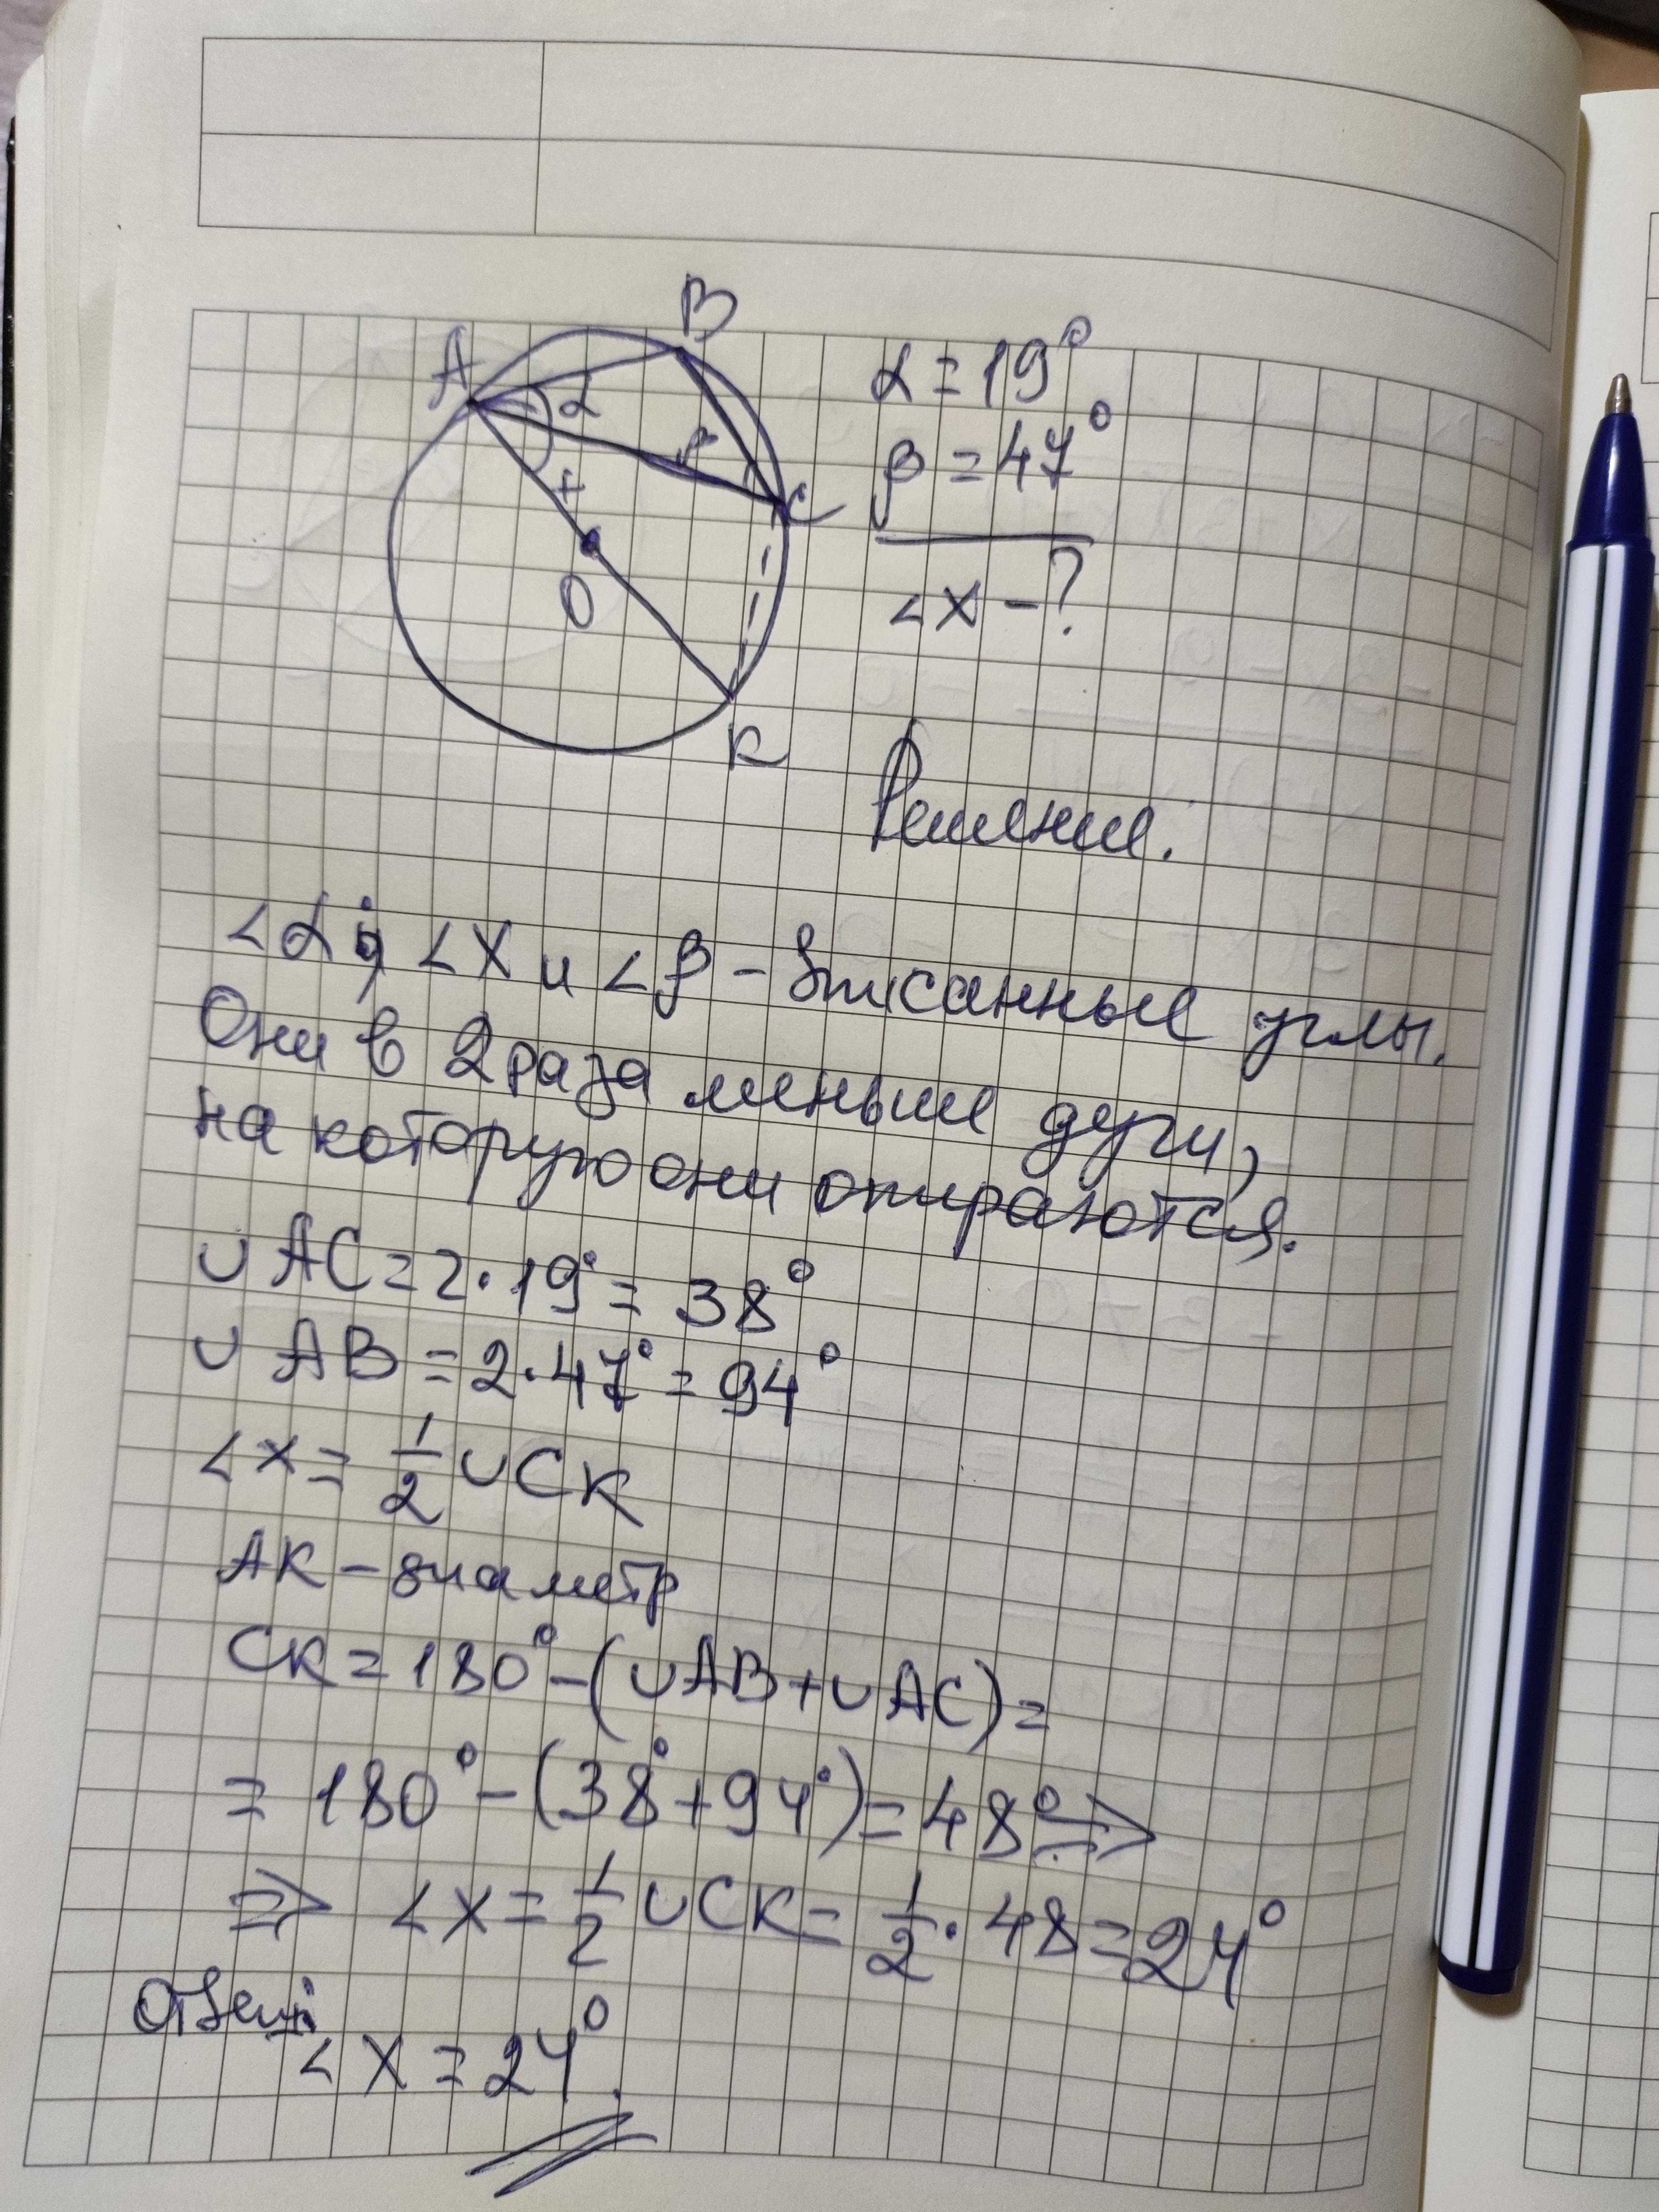 B
A
α
β
x
C
O
K
α = 19°
β = 47°
∠x - ?
Решение.
∠α; ∠x и ∠β - вписанные углы.
Они в 2 раза меньше дуги,
на которую они опираются.
∪AC = 2·19° = 38°
∪AB = 2·47° = 94°
∠x = 1/2 ∪CK
AK - диаметр
CK = 180° - (∪AB + ∪AC) =
= 180° - (38° + 94°) = 48° ⇒
⇒ ∠x = 1/2 ∪CK = 1/2 · 48 = 24°
Ответ:
∠x = 24°.